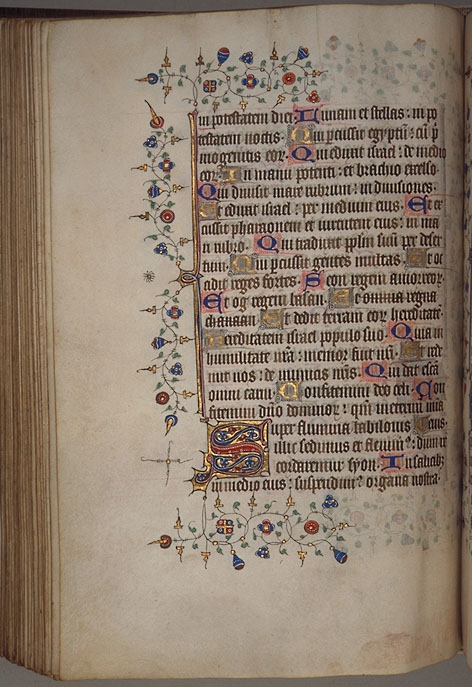 in potestatem diei. Lunam et stellas: in po
testatem noctis. Qui percussit egyptū: cū p̄
mogenitis eoꝝ. Qui eduxit israel: de medio
eoꝝ. In manu potenti: et brachio excelso.
Qui diuisit mare rubrum: in diuisiones.
Et eduxit israel: per medium eius. Et ex
cussit pharaonem et uirtutem eius: in ma
ri rubro. Qui traduxit pplm suū per deser
tum. Qui percussit gentes multas. Et oc
cidit reges fortes. Seon regem amorreoꝝ.
Et og regem basan. Et omnia regna
chanaan. Et dedit terram eoꝝ hereditatē.
Hereditatem israel populo suo. Quia in
humilitate nr̄a: memor fuit nr̄i. Et rede
mit nos: de inimicis nr̄is. Qui dat escā
omni carni. Confitemini deo celi. Con
fitemini dn̄o dominoꝝ: qm̄ in eternum mīa
Super flumina babilonis eius.
illic sedimus et fleuimꝰ: dum re
cordaremur syon. In salicibꝫ
in medio eius: suspendimꝰ organa nostra.